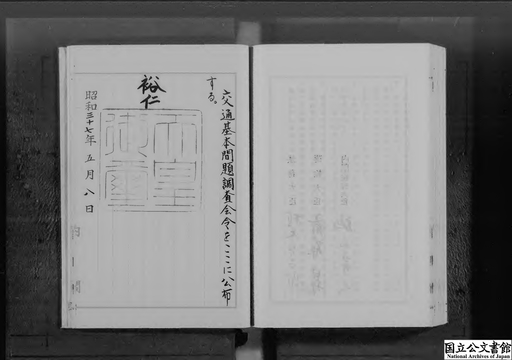 交通基本問題調査会令をここに公布
する。
裕仁
天皇
御璽
昭和三十七年五月八日
内閣
国立公文書館
National Archives of Japan